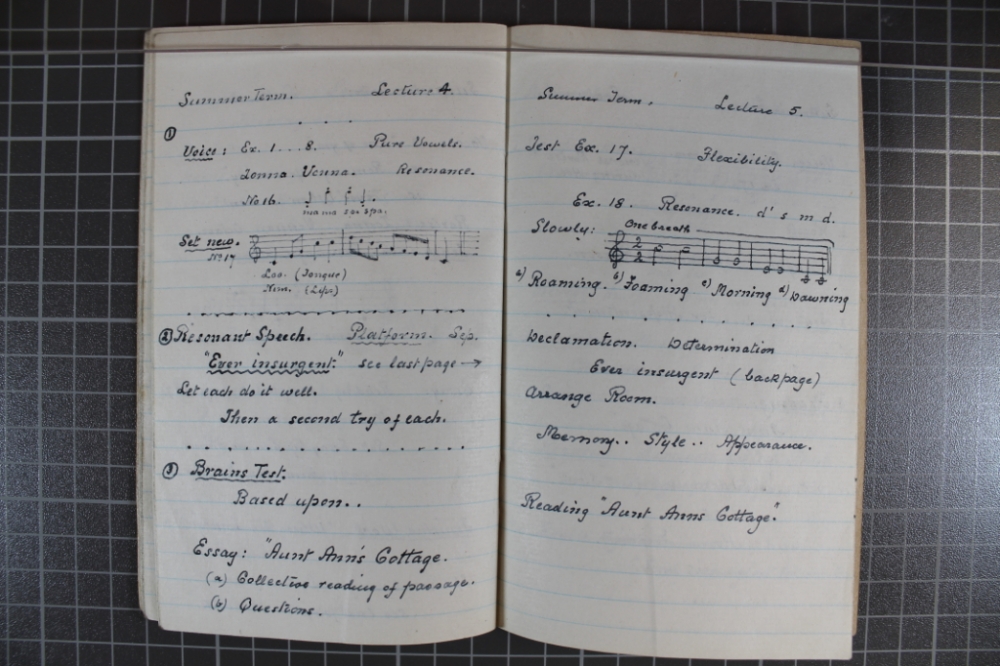 Summer Term. Lecture 4.
①
Voice: Ex. 1 ... 8. Pure Vowels.
Zonna. Venna. Resonance.
No 16.
Set new.
No 17
Loo. (Tongue)
Nim. (Lips)
② Resonant Speech. Platform. Sep.
"Ever insurgent." see last page →
Let each do it well.
Then a second try of each.
③ Brains Test.
Based upon..
Essay: "Aunt Ann's Cottage.
(a) Collective reading of passage.
(b) Questions.
Summer Term. Lecture 5.
Test Ex. 17. Flexibility.
Ex. 18. Resonance. d' s m d.
Slowly: One breath
a) Roaming. b) Foaming c) Morning d) Dawning
Declamation. Determination
Ever insurgent (back page)
Arrange Room.
Memory.. Style.. Appearance.
Reading "Aunt Anns Cottage."